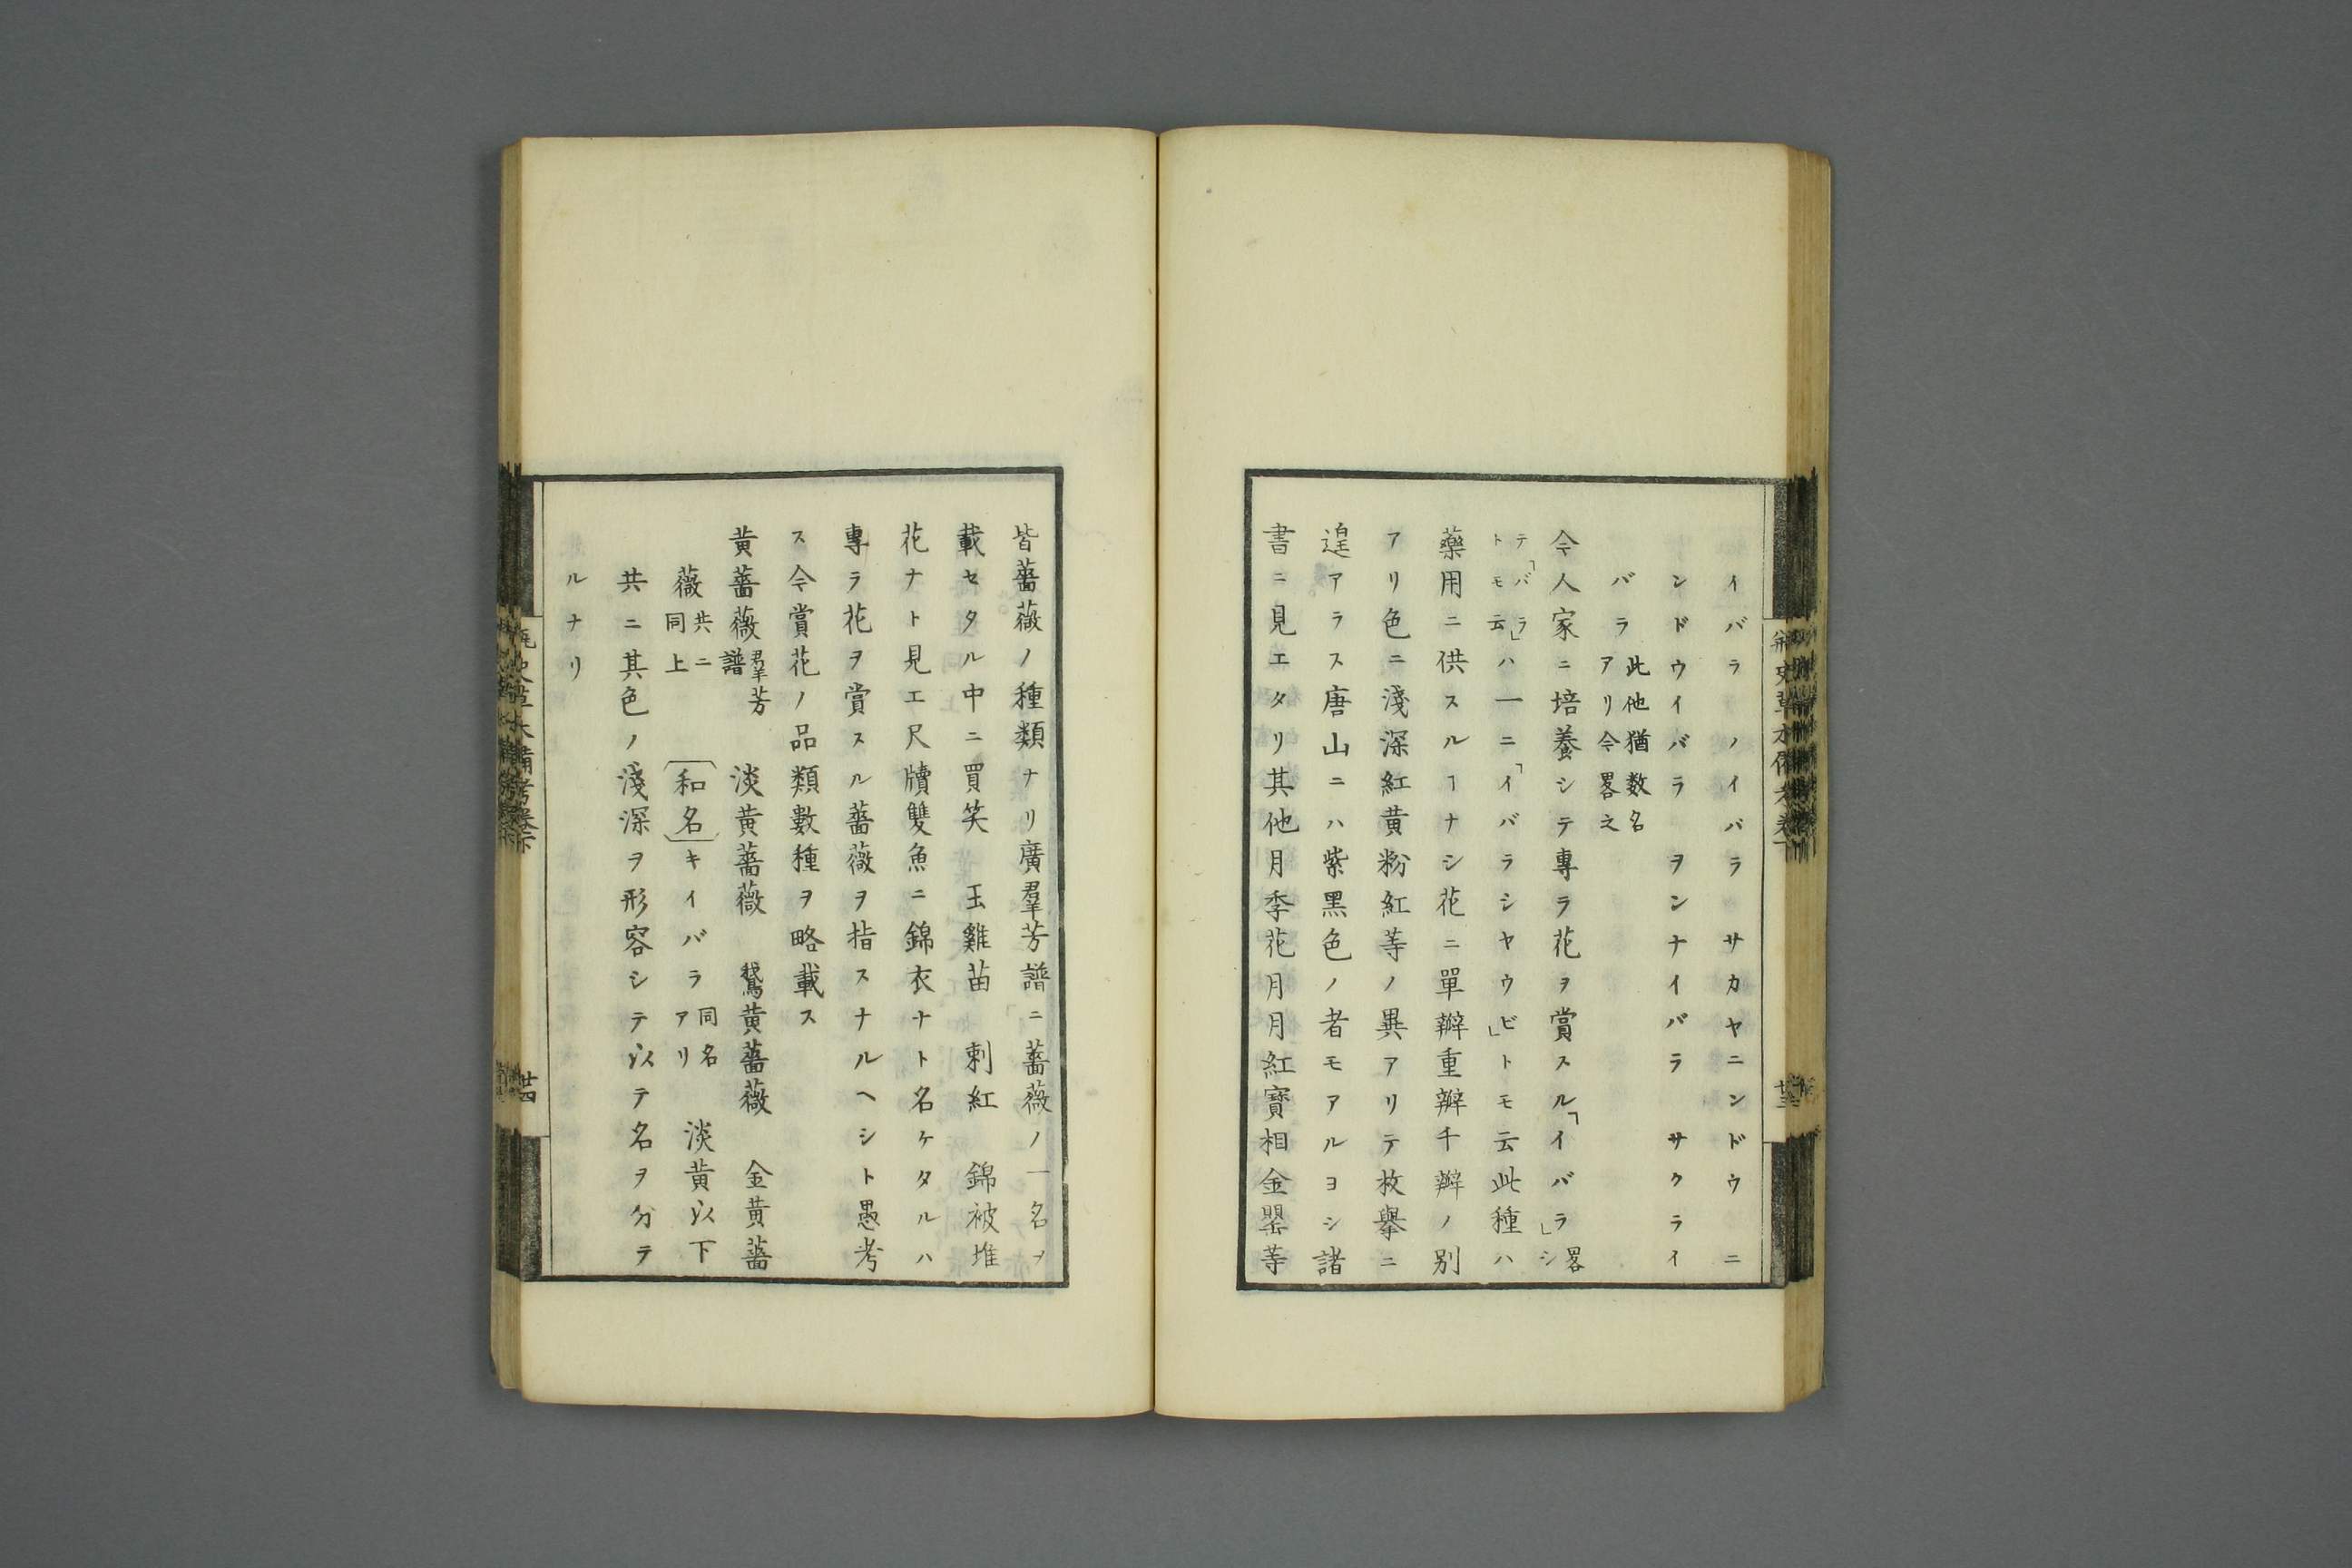 イバラ ノイバラ サカヤニンドウ ニ
ンドウイバラ ヲンナイバラ サクライ
バラ 此他猶数名アリ今畧之
今人家ニ培養シテ專ラ花ヲ賞スル「イバラ」畧シ
テ「バラ」トモ云ハ一ニ「イバラシヤウビ」トモ云此種ハ
藥用ニ供スルヿナシ花ニ單瓣重瓣千瓣ノ別
アリ色ニ淺深紅黄粉紅等ノ異アリテ枚擧ニ
遑アラス唐山ニハ紫黑色ノ者モアルヨシ諸
書ニ見エタリ其他月季花月月紅寶相金罌等
皆薔薇ノ種類ナリ廣羣芳譜ニ薔薇ノ一名ヲ
載セタル中ニ買笑 玉雞苗 刺紅 錦被堆
花ナト見エ尺牘雙魚ニ錦衣ナト名ケタルハ
專ラ花ヲ賞スル薔薇ヲ指スナルヘシト愚考
ス今賞花ノ品類數種ヲ略載ス
黄薔薇 羣芳譜 淡黄薔薇 鵞黄薔薇 金黄薔
薇 共ニ同上 〔和名〕キイバラ 同名アリ 淡黄以下
共ニ其色ノ淺深ヲ形容シテ以テ名ヲ分テ
ルナリ
廿四